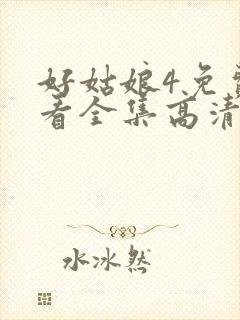 好姑娘4免费
看全集高清
水冰然